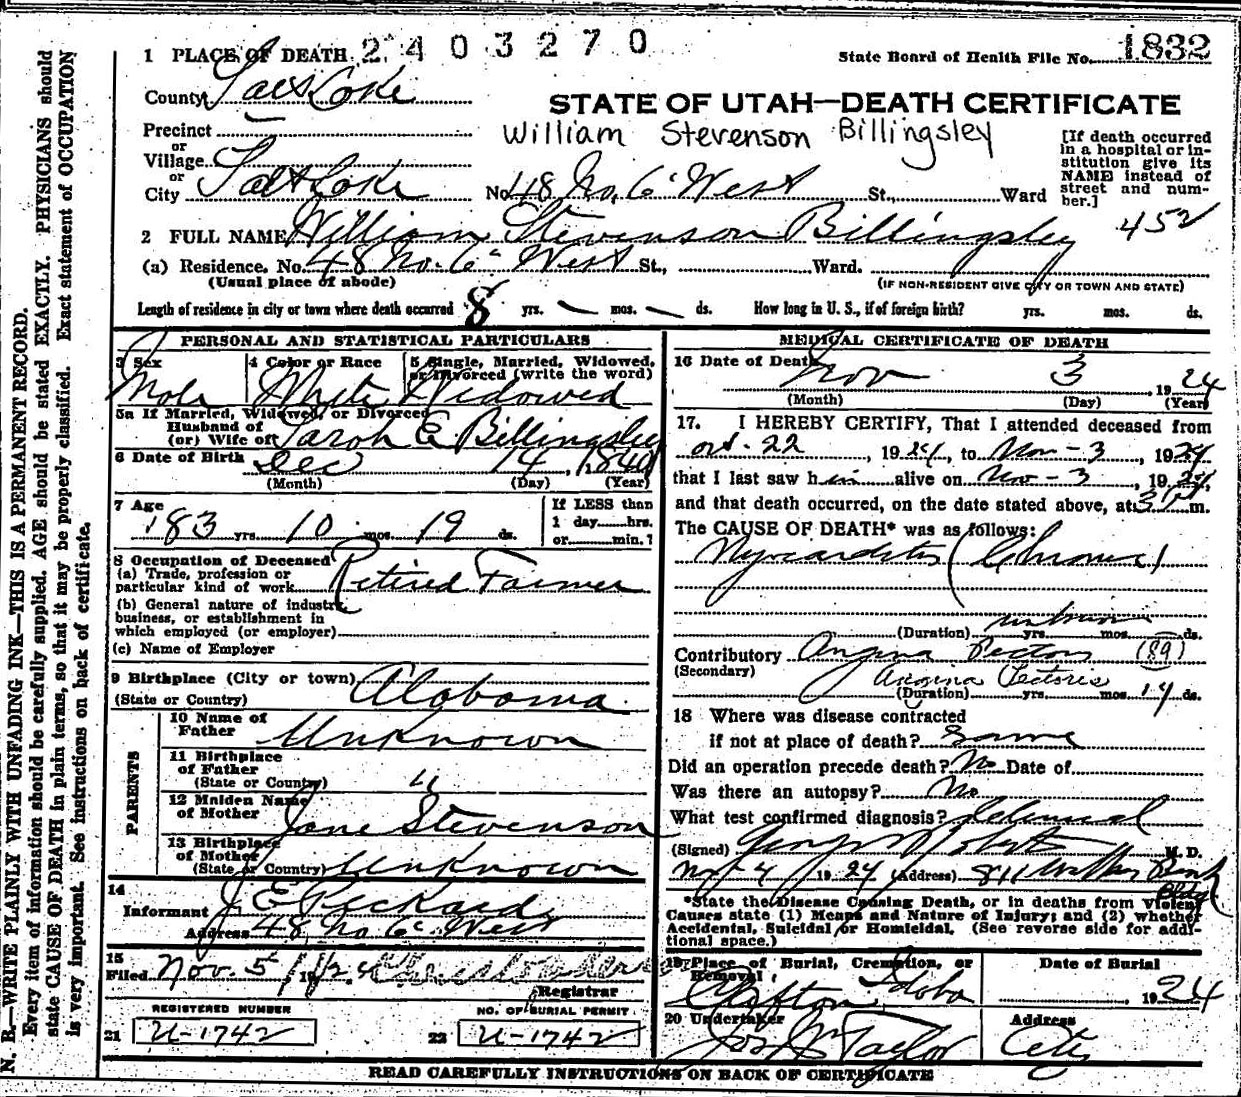 N. B.—WRITE PLAINLY WITH UNFADING INK—THIS IS A PERMANENT RECORD.
Every item of information should be carefully supplied. AGE should be stated EXACTLY. PHYSICIANS should
state CAUSE OF DEATH in plain terms, so that it may be properly classified. Exact statement of OCCUPATION
is very important. See instructions on back of certificate.
1 PLACE OF DEATH 2403270
State Board of Health File No. 1832
County Salt Lake
STATE OF UTAH—DEATH CERTIFICATE
William Stevenson Billingsley
Precinct
or
Village
or
City Salt Lake No. 48 No. 6" West St., Ward
[If death occurred
in a hospital or in-
stitution give its
NAME instead of
street and num-
ber.]
452
2 FULL NAME William Stevenson Billingsley
(a) Residence. No. 48 No. 6" West St., Ward.
(Usual place of abode) (IF NON-RESIDENT GIVE CITY OR TOWN AND STATE)
Length of residence in city or town where death occurred 8 yrs. — mos. — ds. How long in U. S., if of foreign birth? yrs. mos. ds.
PERSONAL AND STATISTICAL PARTICULARS
3 Sex 4 Color or Race 5 Single, Married, Widowed,
or Divorced (write the word)
Male White Widowed
5a If Married, Widowed, or Divorced
Husband of
(or) Wife of Sarah E Billingsley
6 Date of Birth Dec 14, 1840
(Month) (Day) (Year)
7 Age If LESS than
83 yrs. 10 mos. 19 ds. 1 day hrs.
or min.?
8 Occupation of Deceased
(a) Trade, profession or
particular kind of work Retired Farmer
(b) General nature of industry,
business, or establishment in
which employed (or employer)
(c) Name of Employer
9 Birthplace (City or town)
(State or Country) Alabama
PARENTS
10 Name of
Father Unknown
11 Birthplace
of Father
(State or Country) "
12 Maiden Name
of Mother Jane Stevenson
13 Birthplace
of Mother
(State or Country) Unknown
14
Informant J. E. Peckard
Address 48 No. 6" West
15
Filed Nov. 5, 1924
Registrar
REGISTERED NUMBER NO. OF BURIAL PERMIT
21 U-1742 22 U-1742
MEDICAL CERTIFICATE OF DEATH
16 Date of Death
Nov 3 1924
(Month) (Day) (Year)
17. I HEREBY CERTIFY, That I attended deceased from
Oct. 22, 1924, to Nov - 3, 1924
that I last saw him alive on Nov - 3, 1924,
and that death occurred, on the date stated above, at 3 P m.
The CAUSE OF DEATH* was as follows:
Myocarditis (Chronic)
(Duration) unknown yrs. mos. ds.
Contributory Angina Pectoris (89)
(Secondary) Angina Pectoris
(Duration) yrs. mos. 14 ds.
18 Where was disease contracted
if not at place of death? Same
Did an operation precede death? No Date of
Was there an autopsy? No
What test confirmed diagnosis? Clinical
(Signed) George Roberts M. D.
Nov 4 1924 (Address) 811 Walker Bank
Bldg
*State the Disease Causing Death, or in deaths from Violent
Causes state (1) Means and Nature of Injury; and (2) whether
Accidental, Suicidal or Homicidal. (See reverse side for addi-
tional space.)
19 Place of Burial, Cremation, or
Removal Date of Burial
Clifton Idaho , 1924
20 Undertaker Address
Jos. Wm Taylor City
READ CAREFULLY INSTRUCTIONS ON BACK OF CERTIFICATE